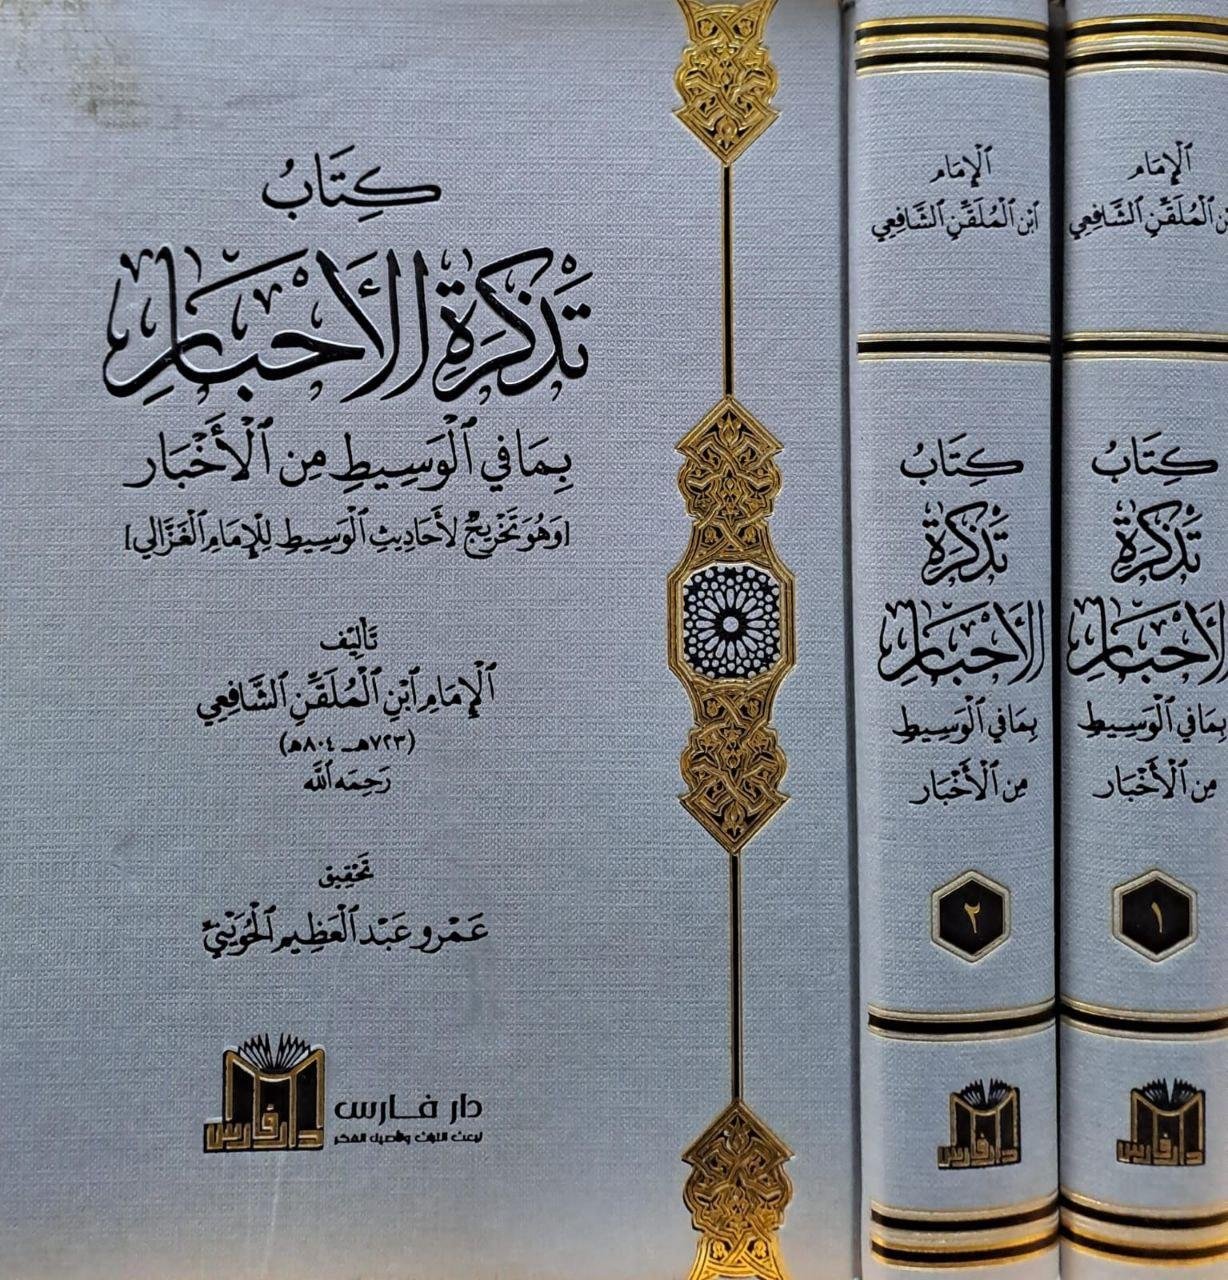 كِتَابُ
تَذْكَرَةِ الْأَحْبَارِ
بِمَا فِي الْوَسِيطِ مِنَ الْأَخْبَار
[وَهُوَ تَخْرِيجٌ لأَحَادِيثِ الْوَسِيطِ لِلْإِمَامِ الْغَزَّالِي]
تَأليف
الْإِمَامِ ابْنِ الْمُلَقِّنِ الشَّافِعِي
(٧٢٣هـ ٨٠٤هـ)
رَحِمَه اللَّه
تَحْقِيق
عَمْرو عَبْد الْعَظِيمِ الْحُوَيْنِيّ
دار فارس
لبعث التراث وتأصيل الفكر
دار فارس
الْإِمَام
ابْن الْمُلَقِّنِ الشَّافِعِي
كِتَابُ
تَذْكَرَةِ
الْأَحْبَارِ
بِمَا فِي الْوَسِيطِ
مِنَ الْأَخْبَار
١
دار فارس
الْإِمَام
ابْن الْمُلَقِّنِ الشَّافِعِي
كِتَابُ
تَذْكَرَةِ
الْأَحْبَارِ
بِمَا فِي الْوَسِيطِ
مِنَ الْأَخْبَار
٢
دار فارس